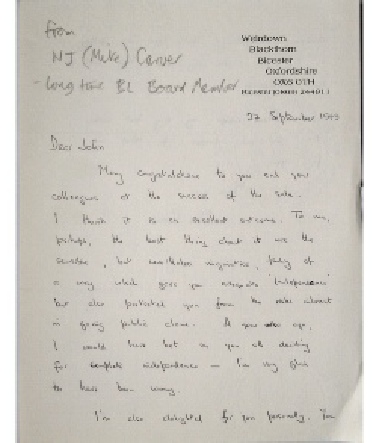 From
NJ (Mike) Carver
- Long time BL Board Member
Weirdown
Blackthorn
Bicester
Oxfordshire
OX6 0TH
27 September 1993
Dear John
Many congratulations to you and your
colleagues at the success of the sale.
I think it is an excellent outcome. To me,
perhaps, the best thing about it was the
sensible, but imaginative,
a way which gives you 'independence'
but also protected you from the risks
in going public alone. A year ago,
I would have bet on you all deciding
for complete independence — I'm very glad
to have been wrong.
I'm also delighted for you personally. You